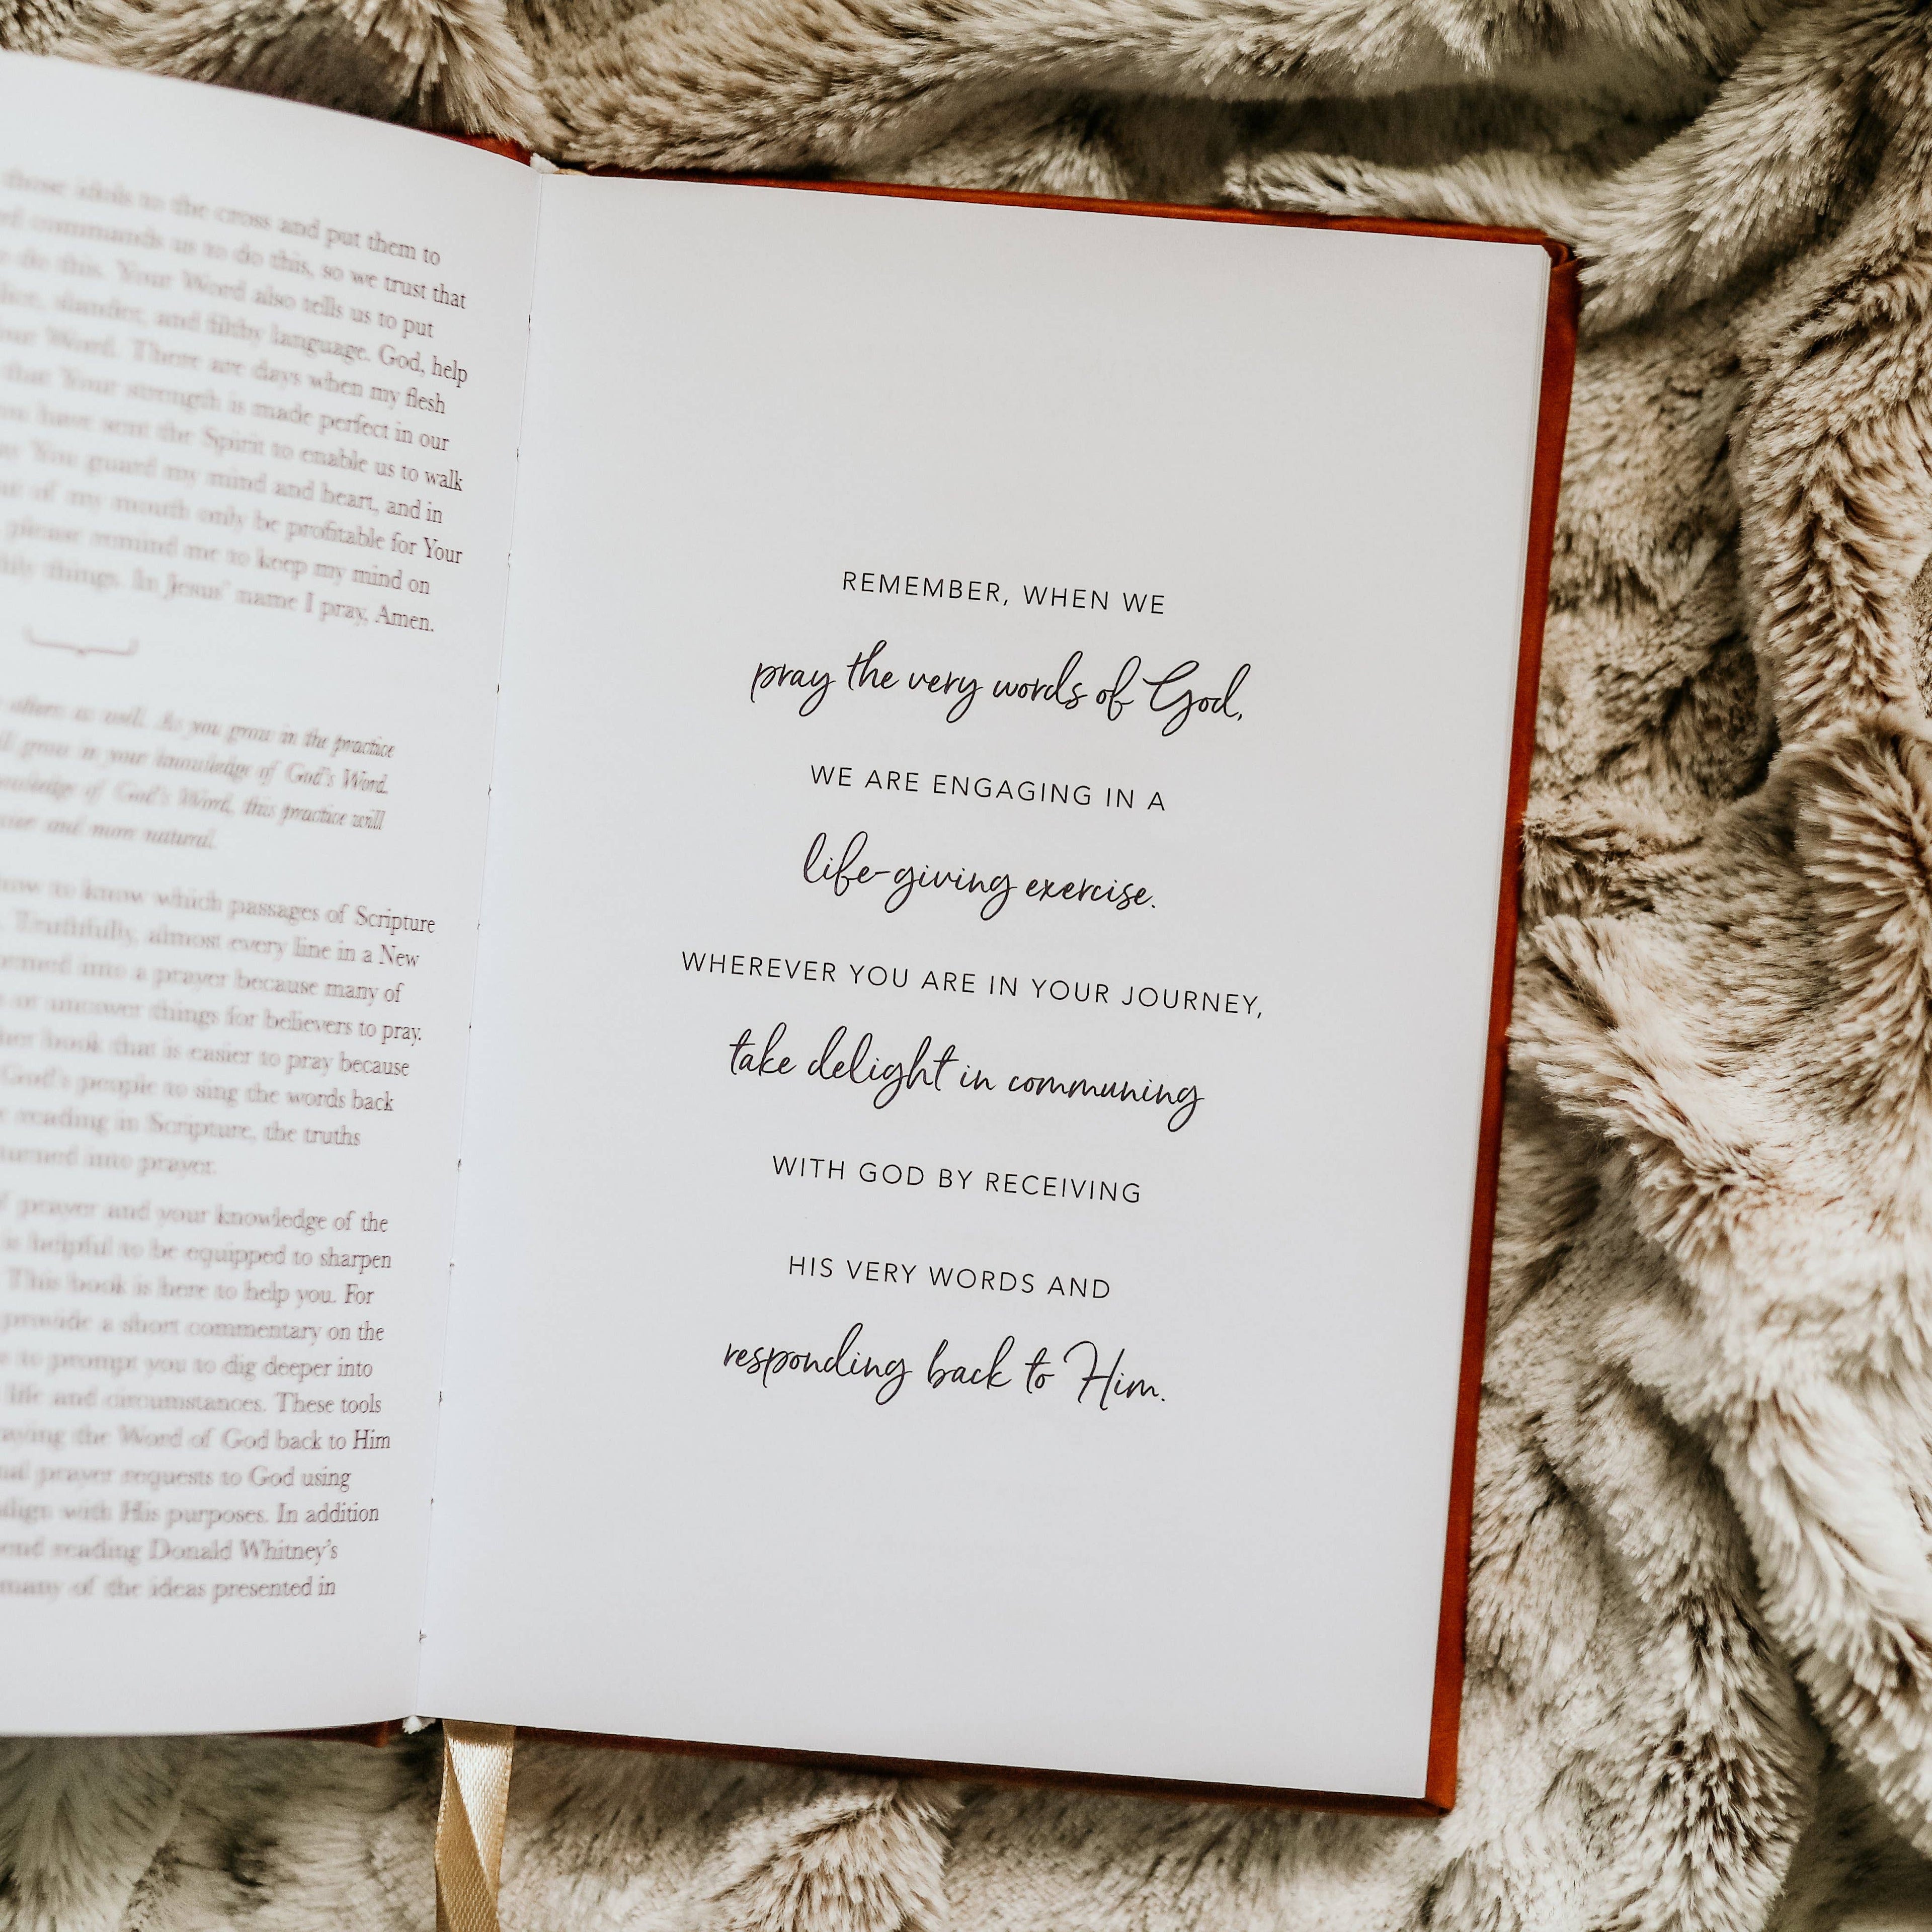 those idols to the cross and put them to
commands us to do this, so we trust that
do this. Your Word also tells us to put
slander, and filthy language. God, help
Word. There are days when my flesh
that Your strength is made perfect in our
have sent the Spirit to enable us to walk
You guard my mind and heart, and in
of my mouth only be profitable for Your
please remind me to keep my mind on
things. In Jesus' name I pray, Amen.
others as well. As you grow in the practice
grow in your knowledge of God's Word.
knowledge of God's Word, this practice will
and more natural.
to know which passages of Scripture
Truthfully, almost every line in a New
into a prayer because many of
or uncover things for believers to pray.
book that is easier to pray because
God's people to sing the words back
reading in Scripture, the truths
turned into prayer.
prayer and your knowledge of the
is helpful to be equipped to sharpen
This book is here to help you. For
provide a short commentary on the
to prompt you to dig deeper into
life and circumstances. These tools
the Word of God back to Him
prayer requests to God using
align with His purposes. In addition
reading Donald Whitney's
many of the ideas presented in
REMEMBER, WHEN WE
pray the very words of God,
WE ARE ENGAGING IN A
life-giving exercise.
WHEREVER YOU ARE IN YOUR JOURNEY,
take delight in communing
WITH GOD BY RECEIVING
HIS VERY WORDS AND
responding back to Him.